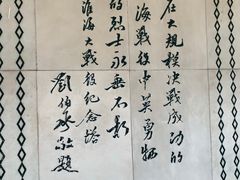 在大规模决战成功的
海战役中英勇牺
的烈士永垂不朽
淮海大战役纪念塔
刘伯承敬题